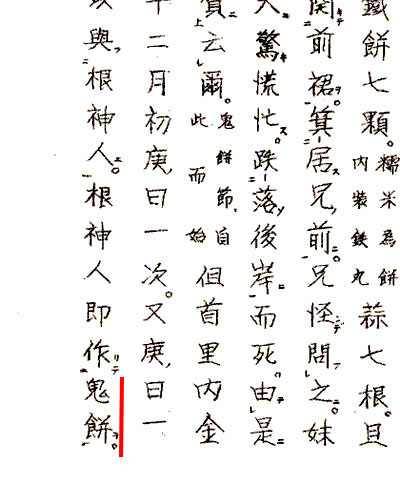 鐵餅七顆。糯米為餅
内装鉄丸
蒜七根。且
開前裙箕居兄前。兄怪問之。妹
大驚慌忙跌落後岸而死。由是
賀云爾。鬼餅節自
此而始
但首里内金
十二月初庚日一次。又庚日一
以與根神人。根神人即作鬼餅。